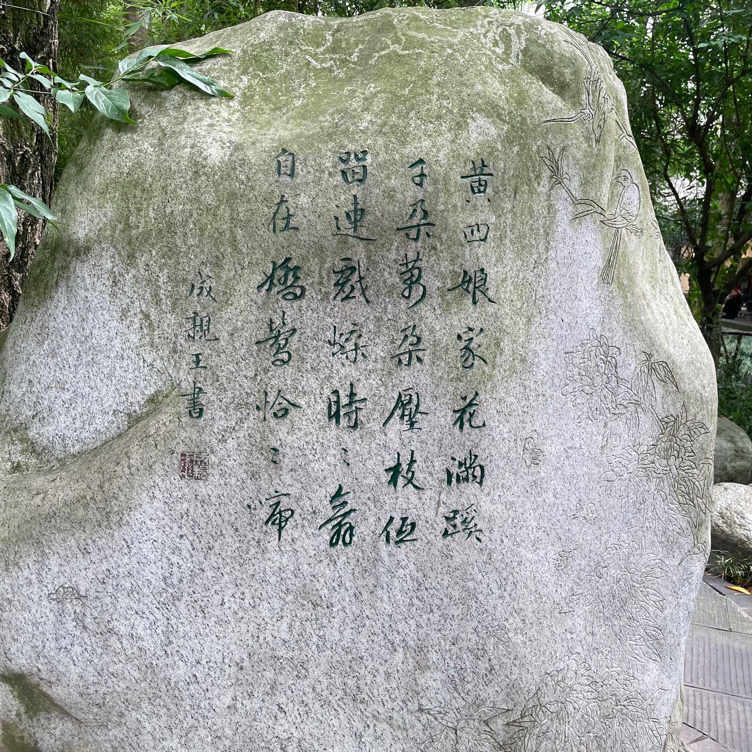 黄四娘家花滿蹊
千朶萬朶壓枝低
畱連戲蝶時〻舞
自在嬌鶯恰〻啼
成親王書